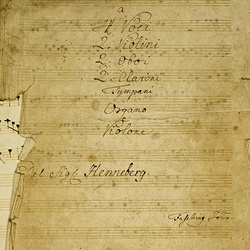 a
4 Voci
2. Violini
2. Oboi
2. Clarini
Tympani
Organo
e
Violone
Del Sigl. Henneberg.